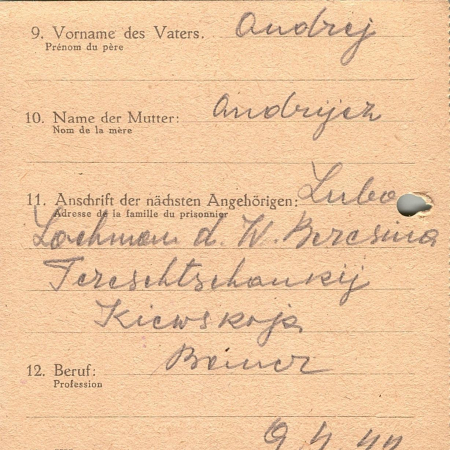 9. Vorname des Vaters. Andrej
Prénom du père
10. Name der Mutter: Andrijez
Nom de la mère
11. Anschrift der nächsten Angehörigen: Luba
Adresse de la famille du prisonnier
Lachman d. W. Beresina
Tereschtschanskij
Kiewskoja
12. Beruf:
Profession